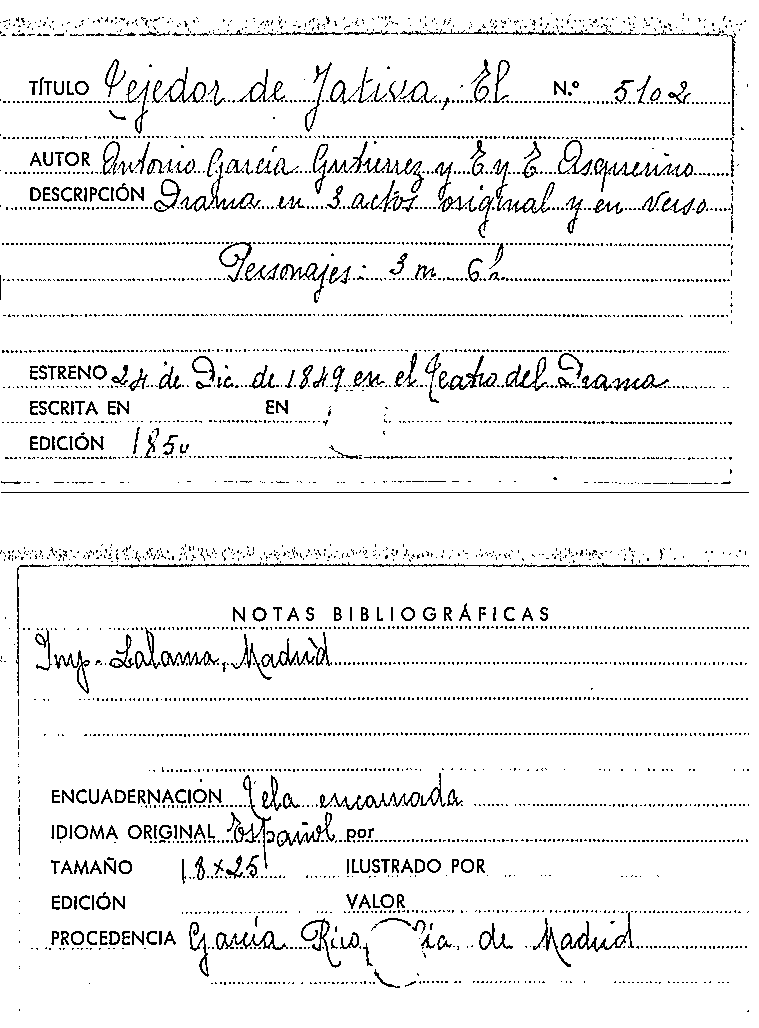 TÍTULO Tejedor de Jativa, El N.º 5102
AUTOR Antonio García Gutierrez y E y E Asquerino
DESCRIPCIÓN Drama en 3 actos original y en verso
Personajes: 3 m 6 h
ESTRENO 24 de Dic. de 1849 en el Teatro del Drama
ESCRITA EN EN
EDICIÓN 1850
NOTAS BIBLIOGRÁFICAS
Imp. Lalama, Madrid
ENCUADERNACIÓN Tela encarnada
IDIOMA ORIGINAL Español por
TAMAÑO 18x25 ILUSTRADO POR
EDICIÓN VALOR
PROCEDENCIA García Rico, Cía, de Madrid